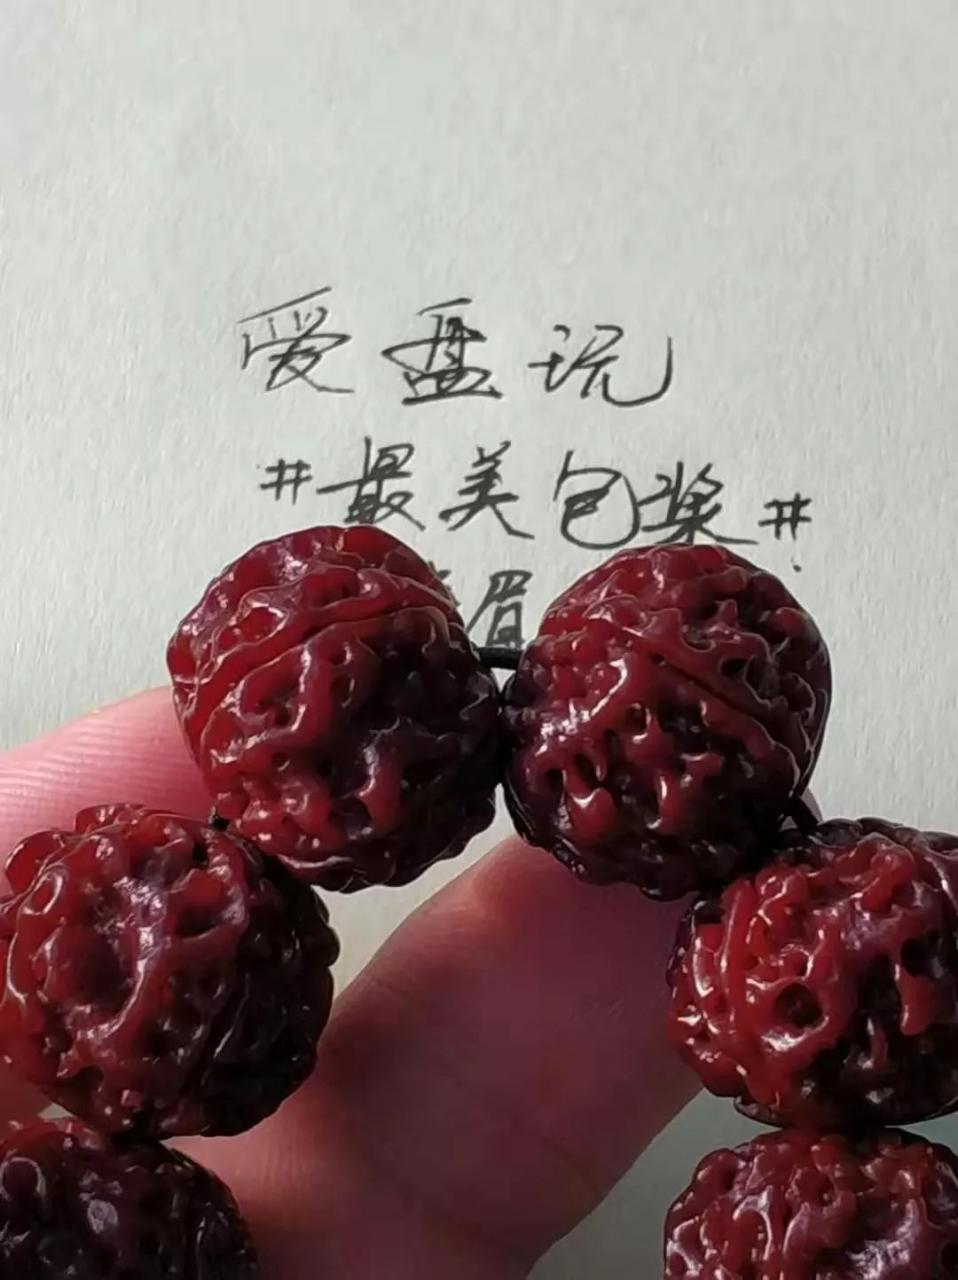 爱盘玩
#最美包浆#
眉